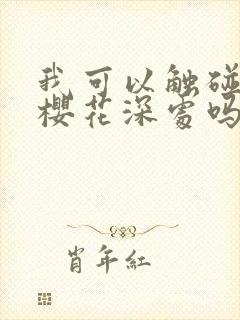 我可以触碰
樱花深处吗
肖年红